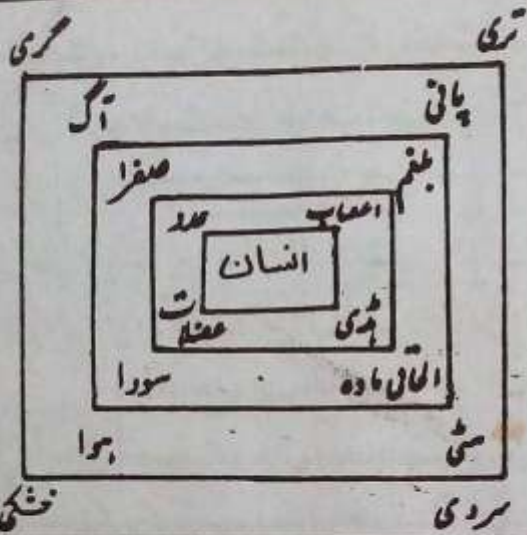 تری گرمی
پانی آگ
بلغم صفرا
اعصاب غدد
انسان
ہڈی عضلات
الحاقی مادہ سودا
مٹی ہوا
سردی خشکی